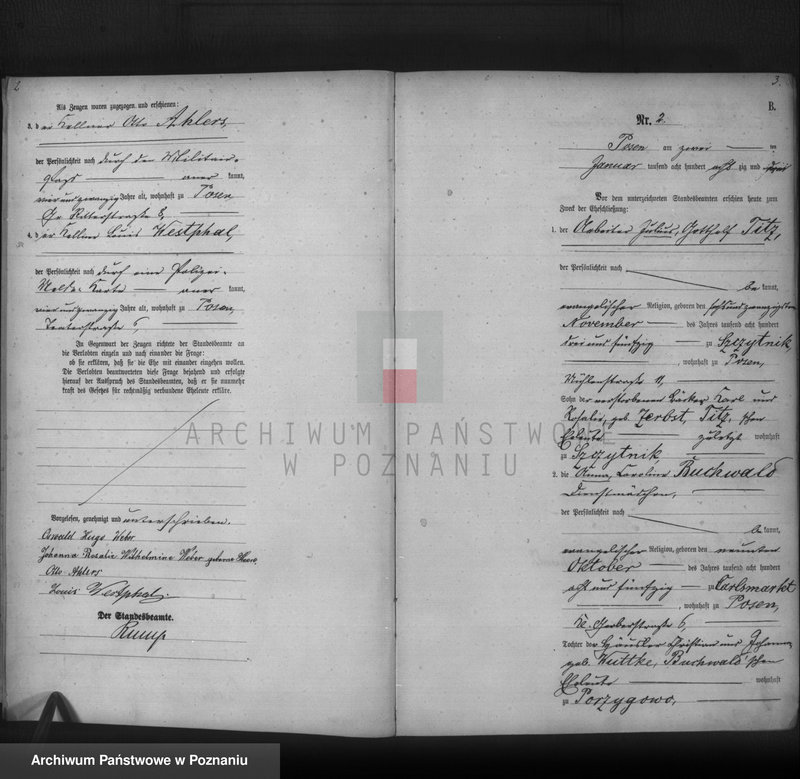 2
Als Zeugen waren zugezogen und erschienen:
3. der Kellner Otto Ahlers,
der Persönlichkeit nach durch den Militair-
paß aner kannt,
vier und zwanzig Jahre alt, wohnhaft zu Posen
Gr. Ritterstraße
4. der Kellner Louis Westphal,
der Persönlichkeit nach durch eine Polizei-
Melde-Karte aner kannt,
vier und zwanzig Jahre alt, wohnhaft zu Posen,
6,
In Gegenwart der Zeugen richtete der Standesbeamte an
die Verlobten einzeln und nach einander die Frage:
ob sie erklären, daß sie die Ehe mit einander eingehen wollen.
Die Verlobten beantworteten diese Frage bejahend und erfolgte
hierauf der Ausspruch des Standesbeamten, daß er sie nunmehr
kraft des Gesetzes für rechtmäßig verbundene Eheleute erkläre.
Vorgelesen, genehmigt und unterschrieben.
Oswald Hugo Weber
Johanna Rosalie Wilhelmine Weber geborene
Otto Ahlers
Louis Westphal.
Der Standesbeamte.
Rump
3.
B.
Nr. 2.
Posen am zwei ten
Januar tausend acht hundert acht zig und drei
Vor dem unterzeichneten Standesbeamten erschien heute zum
Zweck der Eheschließung:
1. der Arbeiter Julius, Gotthilf Titz,
der Persönlichkeit nach
be kannt,
evangelischer Religion, geboren den sechsundzwanzigsten
November des Jahres tausend acht hundert
drei und fünfzig zu Szczytnik,
, wohnhaft zu Posen,
Mühlenstraße 11,
Sohn der verstorbenen Bäcker Karl und
Rosalie, geb. Zerbst, Titz, schen
Eheleute zuletzt wohnhaft
zu Szczytnik
2. die Anna, Caroline Buchwald
Dienstmädchen,
der Persönlichkeit nach
be kannt,
evangelischer Religion, geboren den neunten
Oktober des Jahres tausend acht hundert
acht und fünfzig zu Carlsmarkt
, wohnhaft zu Posen,
Kl. Gerberstraße 6,
Tochter der Häusler Christian und Johanna,
geb. Wuttke, Buchwald'schen
Eheleute wohnhaft
zu Porzygowo,
ARCHIWUM PAŃSTWOWE
W POZNANIU
Archiwum Państwowe w Poznaniu